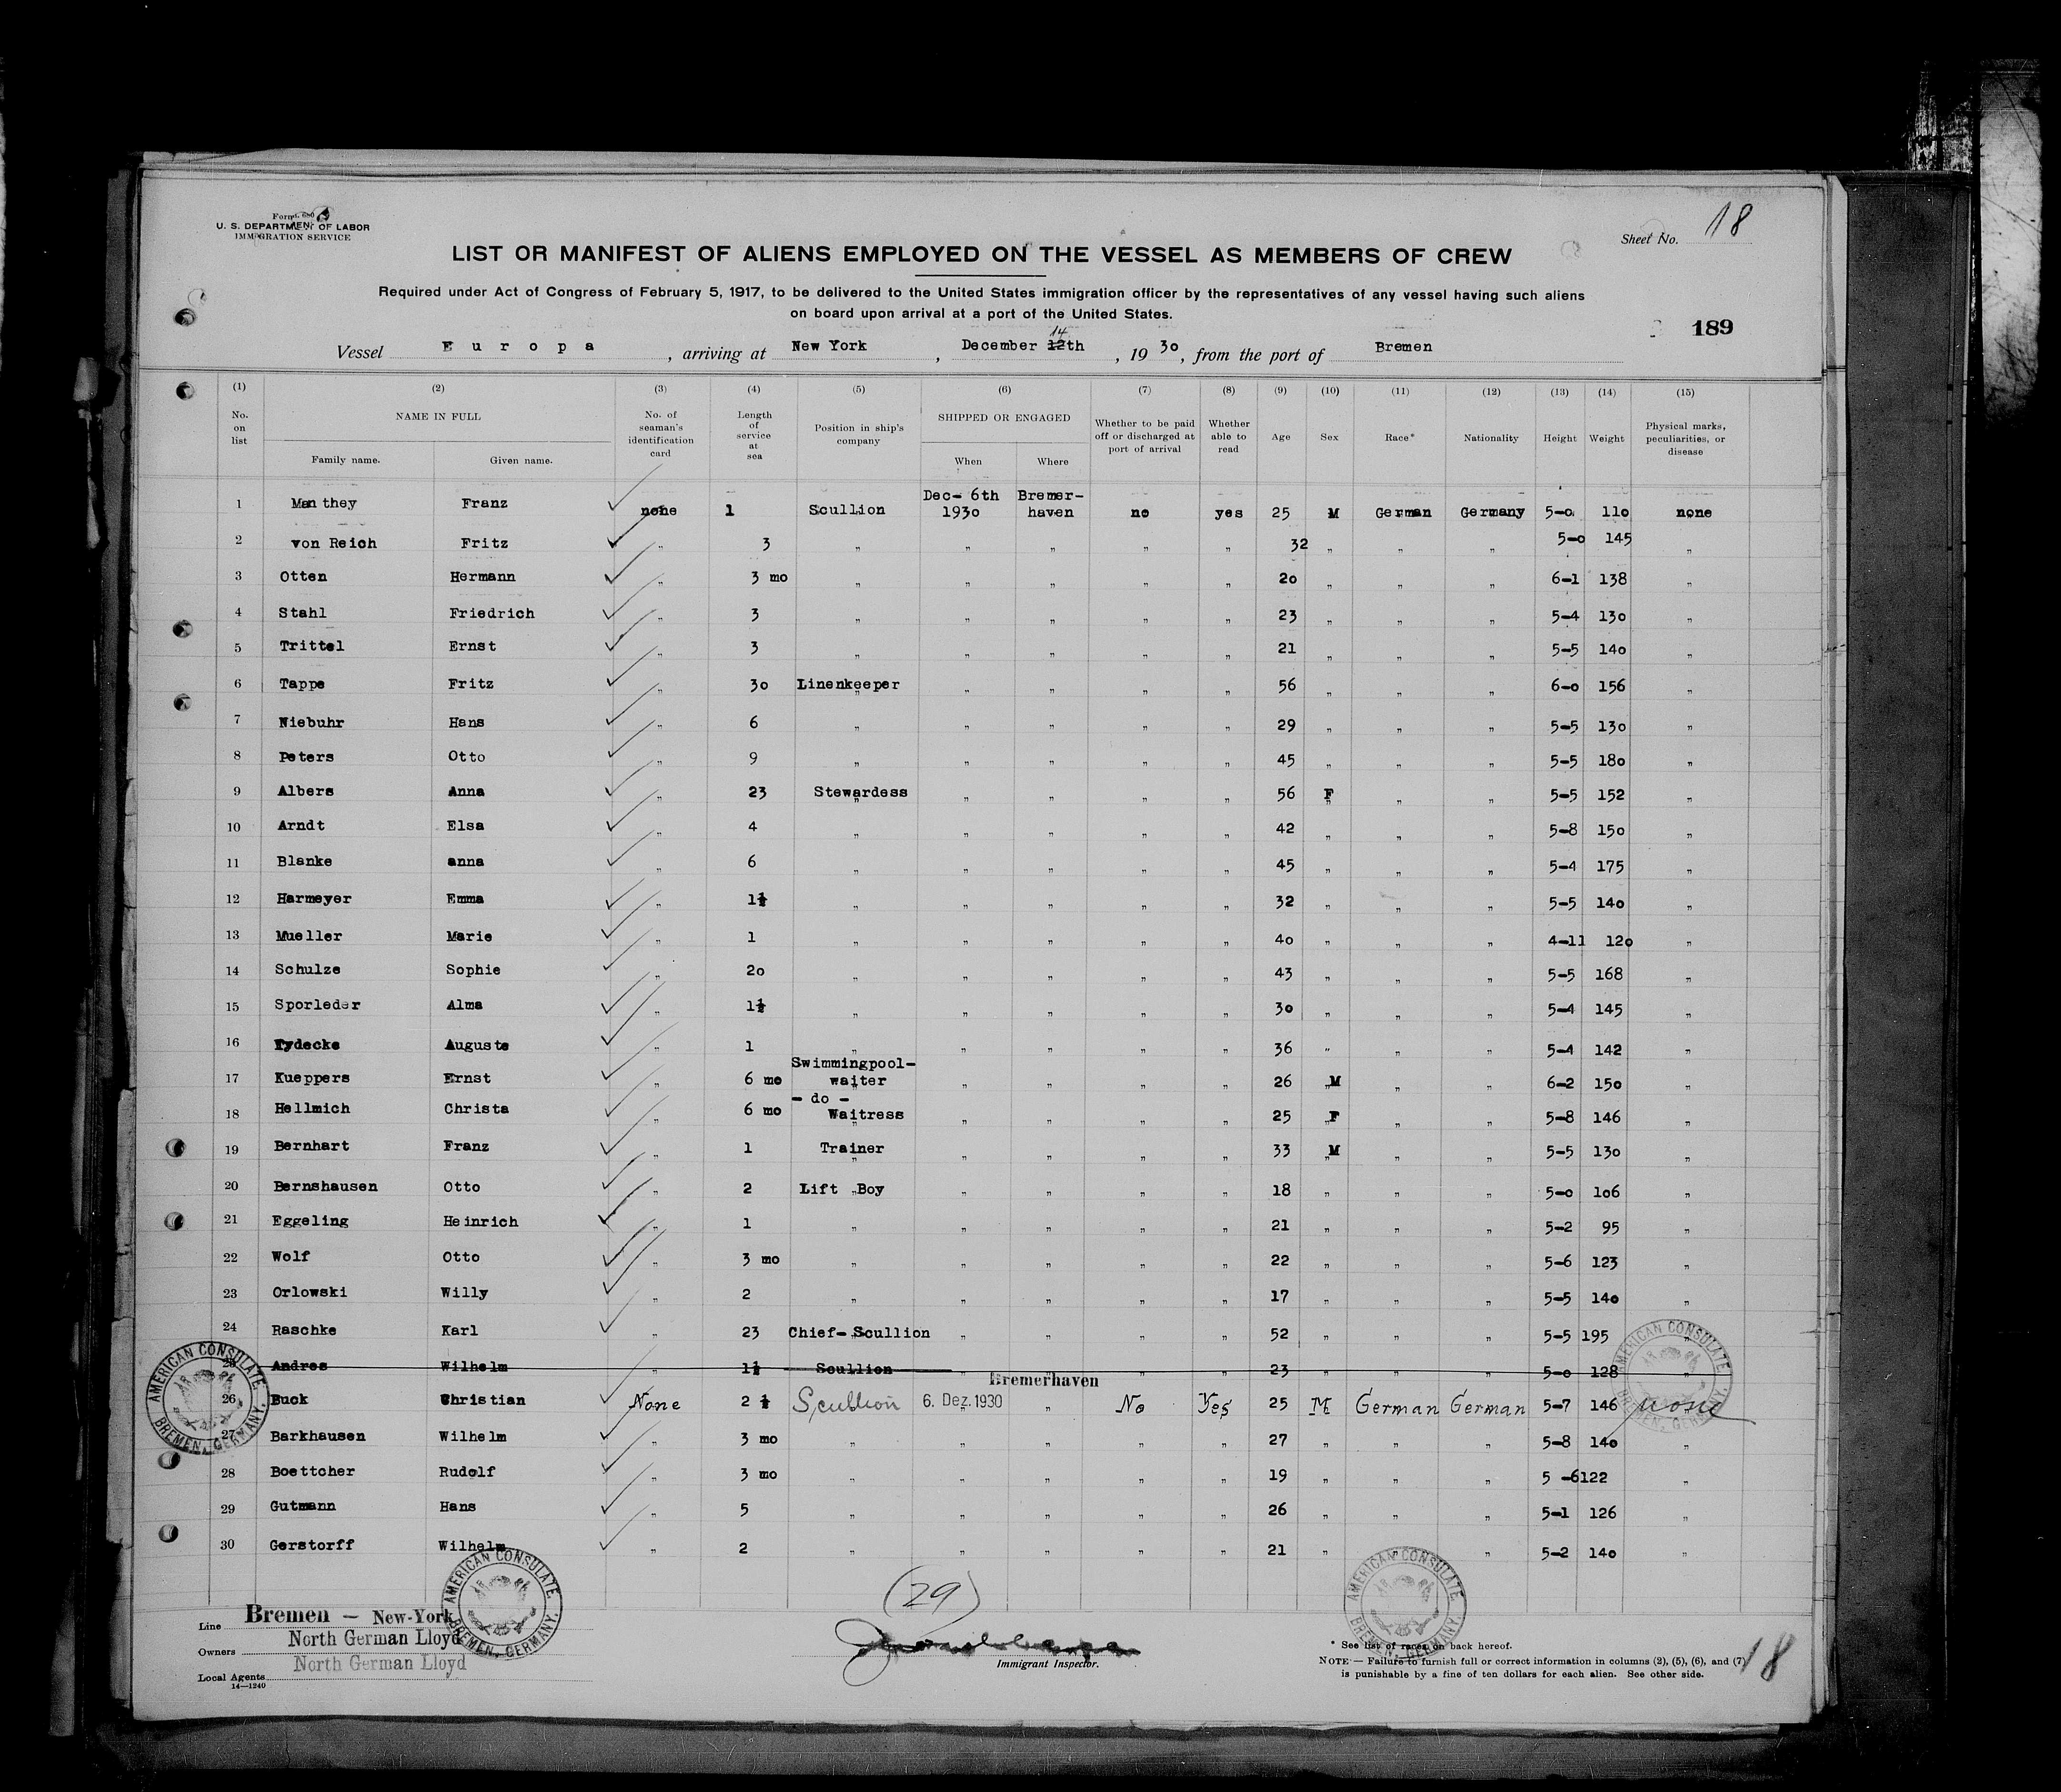 Form 680
U. S. DEPARTMENT OF LABOR
IMMIGRATION SERVICE
Sheet No. 18
LIST OR MANIFEST OF ALIENS EMPLOYED ON THE VESSEL AS MEMBERS OF CREW
Required under Act of Congress of February 5, 1917, to be delivered to the United States immigration officer by the representatives of any vessel having such aliens
on board upon arrival at a port of the United States.
189
14
Vessel Europa, arriving at New York, December 12th, 1930, from the port of Bremen
(1) (2) (3) (4) (5) (6) (7) (8) (9) (10) (11) (12) (13) (14) (15)
No. on list NAME IN FULL Family name. Given name. No. of seaman's identification card Length of service at sea Position in ship's company SHIPPED OR ENGAGED When Where Whether to be paid off or discharged at port of arrival Whether able to read Age Sex Race* Nationality Height Weight Physical marks, peculiarities, or disease
1 Manthey Franz none 1 Scullion Dec- 6th 1930 Bremer-haven no yes 25 M German Germany 5-0 110 none
2 von Reich Fritz „ 3 „ „ „ „ „ 32 „ „ „ 5-0 145 „
3 Otten Hermann „ 3 mo „ „ „ „ „ 20 „ „ „ 6-1 138 „
4 Stahl Friedrich „ 3 „ „ „ „ „ 23 „ „ „ 5-4 130 „
5 Trittel Ernst „ 3 „ „ „ „ „ 21 „ „ „ 5-5 140 „
6 Tappe Fritz „ 30 Linenkeeper „ „ „ „ 56 „ „ „ 6-0 156 „
7 Niebuhr Hans „ 6 „ „ „ „ „ 29 „ „ „ 5-5 130 „
8 Peters Otto „ 9 „ „ „ „ „ 45 „ „ „ 5-5 180 „
9 Albers Anna „ 23 Stewardess „ „ „ „ 56 F „ „ 5-5 152 „
10 Arndt Elsa „ 4 „ „ „ „ „ 42 „ „ „ 5-8 150 „
11 Blanke anna „ 6 „ „ „ „ „ 45 „ „ „ 5-4 175 „
12 Harmeyer Emma „ 1½ „ „ „ „ „ 32 „ „ „ 5-5 140 „
13 Mueller Marie „ 1 „ „ „ „ „ 40 „ „ „ 4-11 120 „
14 Schulze Sophie „ 20 „ „ „ „ „ 43 „ „ „ 5-5 168 „
15 Sporleder Alma „ 1½ „ „ „ „ „ 30 „ „ „ 5-4 145 „
16 Tydecke Auguste „ 1 „ „ „ „ „ 36 „ „ „ 5-4 142 „
17 Kueppers Ernst „ 6 mo Swimmingpool-waiter „ „ „ „ 26 M „ „ 6-2 150 „
18 Hellmich Christa „ 6 mo - do - Waitress „ „ „ „ 25 F „ „ 5-8 146 „
19 Bernhart Franz „ 1 Trainer „ „ „ „ 33 M „ „ 5-5 130 „
20 Bernshausen Otto „ 2 Lift Boy „ „ „ „ 18 „ „ „ 5-0 106 „
21 Eggeling Heinrich „ 1 „ „ „ „ „ 21 „ „ „ 5-2 95 „
22 Wolf Otto „ 3 mo „ „ „ „ „ 22 „ „ „ 5-6 123 „
23 Orlowski Willy „ 2 „ „ „ „ „ 17 „ „ „ 5-5 140 „
24 Raschke Karl „ 23 Chief-Scullion „ „ „ „ 52 „ „ „ 5-5 195 „
25 Andres Wilhelm „ 1½ Scullion „ „ „ „ 23 „ „ „ 5-0 128 „
Bremerhaven
26 Buck Christian None 2 ½ Scullion 6. Dez. 1930 „ No Yes 25 M German German 5-7 146 none
27 Barkhausen Wilhelm „ 3 mo „ „ „ „ „ 27 „ „ „ 5-8 140 „
28 Boettcher Rudolf „ 3 mo „ „ „ „ „ 19 „ „ „ 5 -6 122 „
29 Gutmann Hans „ 5 „ „ „ „ „ 26 „ „ „ 5-1 126 „
30 Gerstorff Wilhelm „ 2 „ „ „ „ „ 21 „ „ „ 5-2 140 „
AMERICAN CONSULATE BREMEN, GERMANY.
AMERICAN CONSULATE BREMEN, GERMANY.
AMERICAN CONSULATE BREMEN, GERMANY.
AMERICAN CONSULATE BREMEN, GERMANY.
(29)
Line Bremen - New-York
Owners North German Lloyd
Local Agents North German Lloyd
14-1240
Immigrant Inspector.
* See list of races on back hereof.
NOTE.— Failure to furnish full or correct information in columns (2), (5), (6), and (7)
is punishable by a fine of ten dollars for each alien. See other side.
18